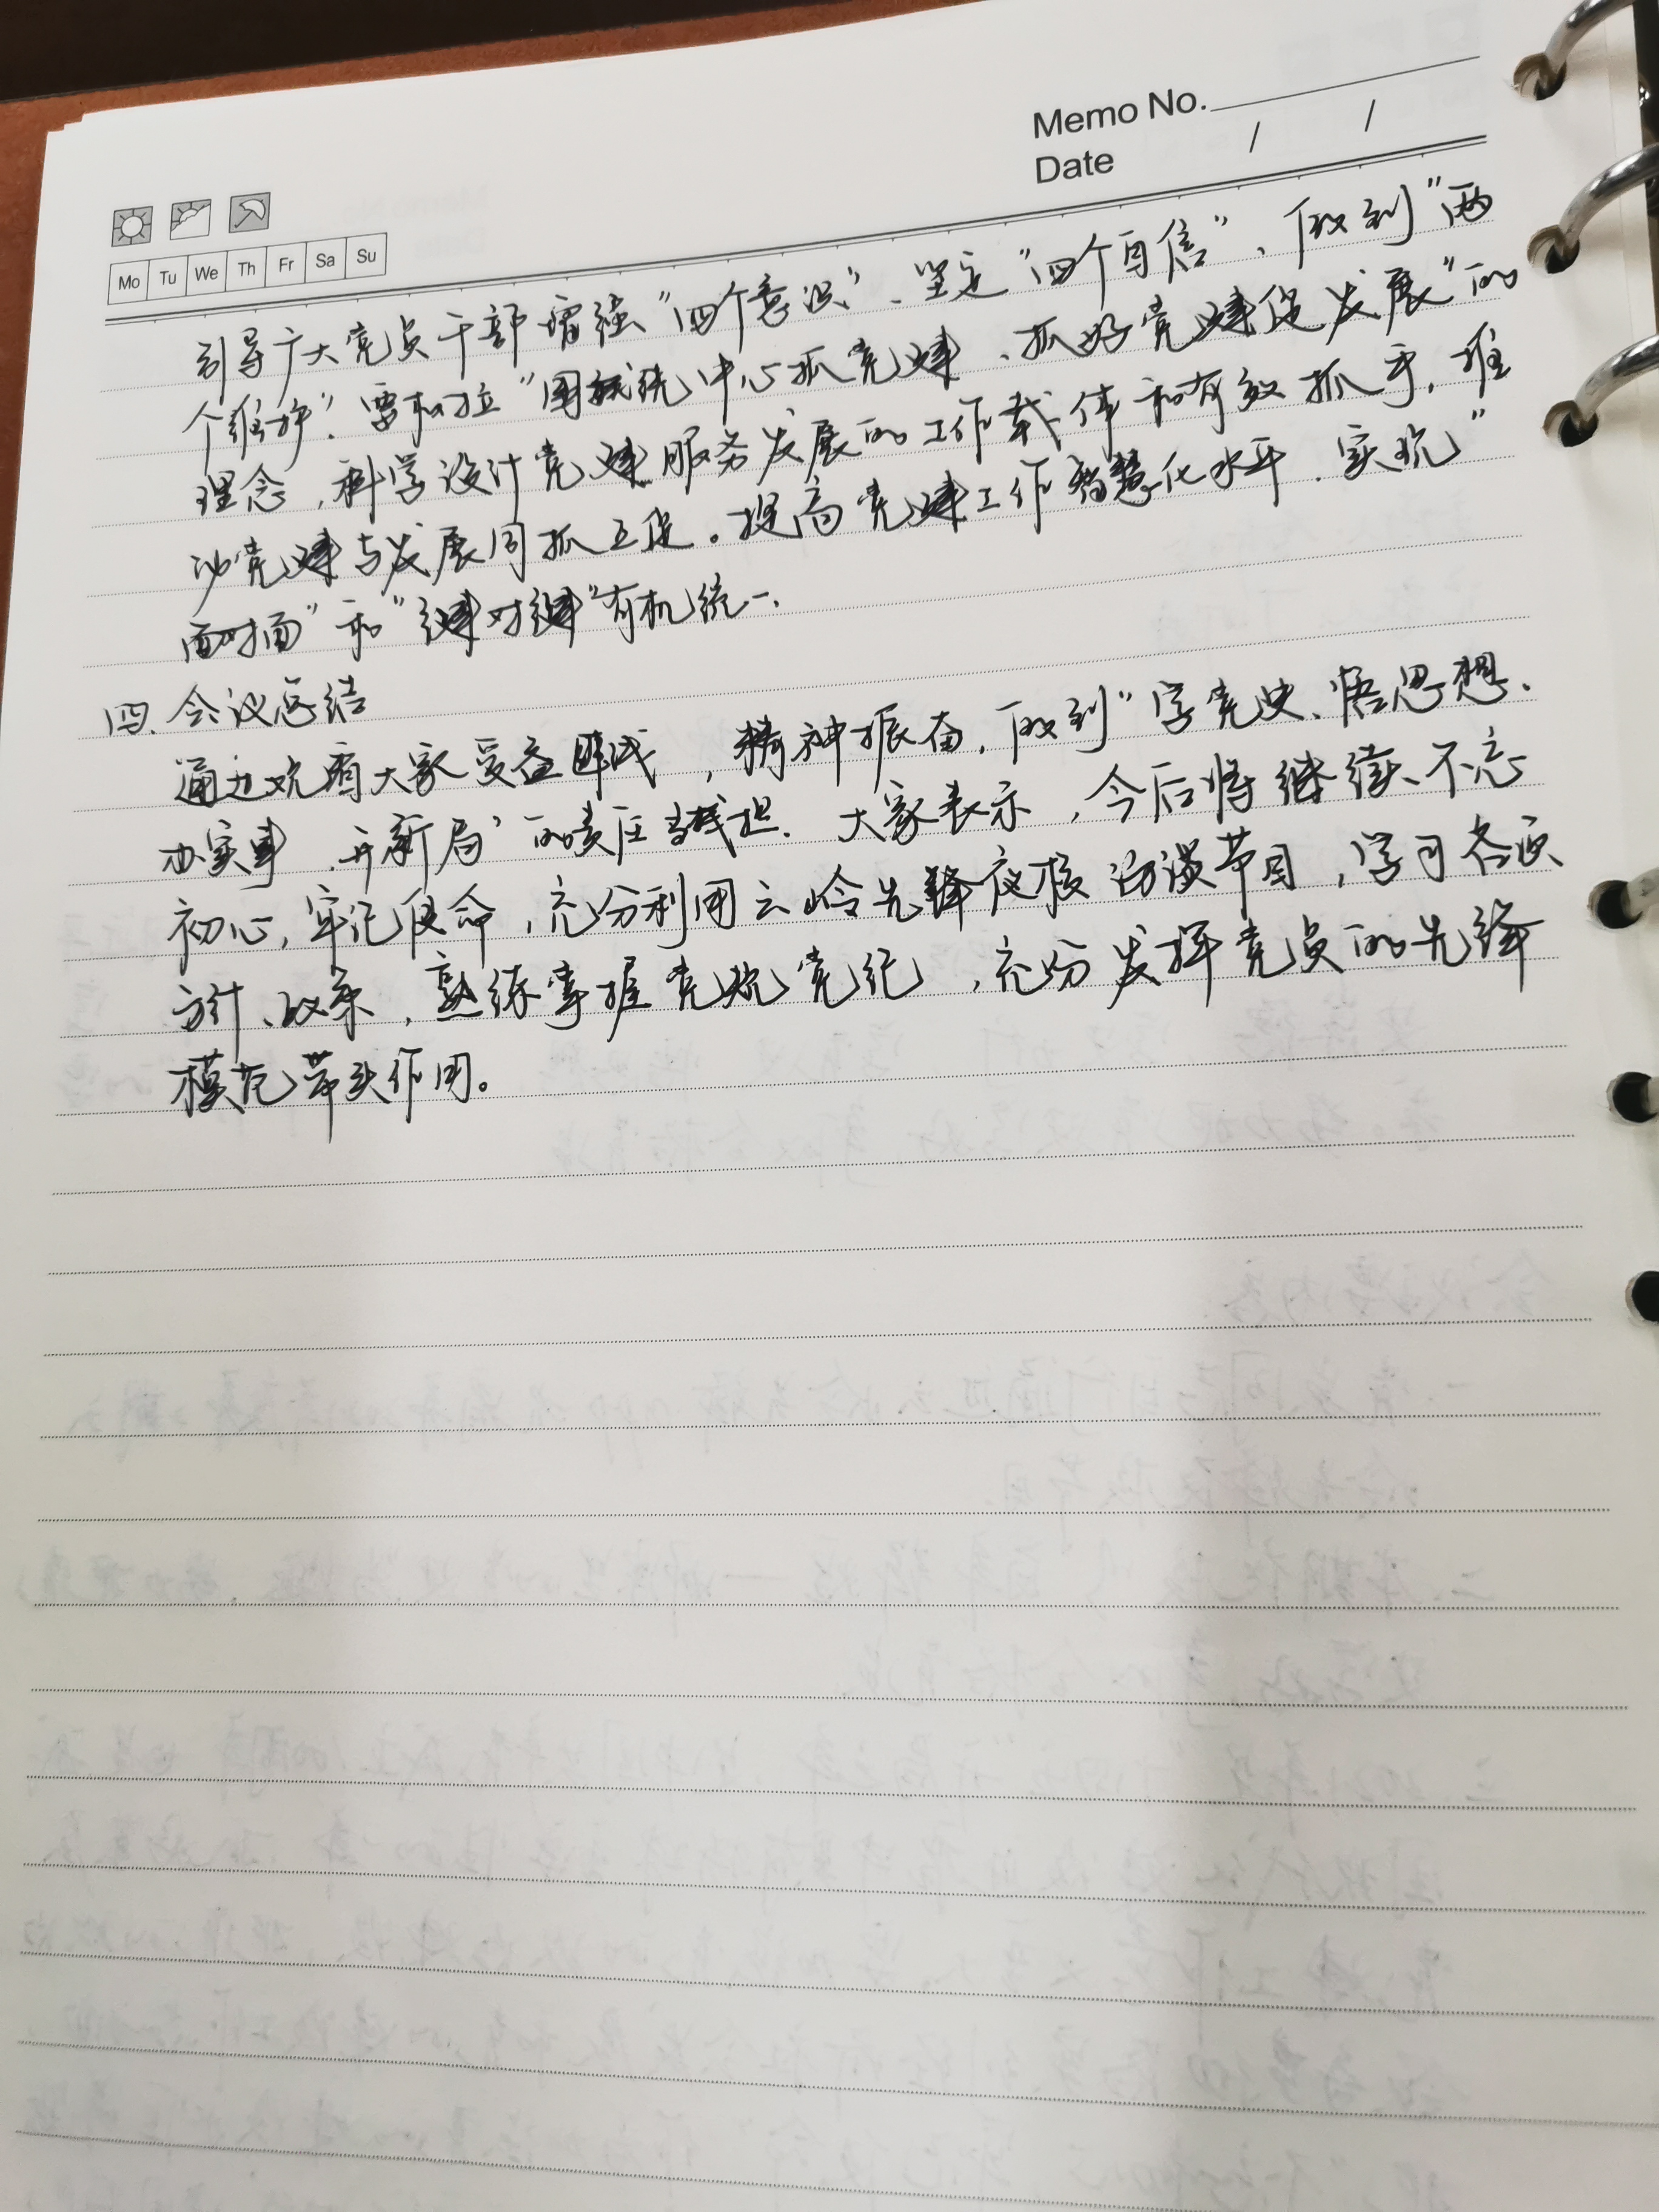 Memo No.
Date / /
Mo Tu We Th Fr Sa Su
引导广大党员干部增强“四个意识”、坚定“四个自信”、做到“两
个维护”。要树立“围绕中心抓党建、抓好党建促发展”的
理念，科学设计党建服务发展的工作载体和有效抓手，推
动党建与发展同抓互促。提高党建工作智慧化水平，实现“
面对面”和“键对键”有机统一.
四、会议总结
通过观看大家受益匪浅，精神振奋，做到“学党史、悟思想、
办实事、开新局”的责任担. 大家表示，今后将继续、不忘
初心，牢记使命，充分利用云岭先锋夜校访谈节目，学习各项
方针、政策，熟练掌握党规党纪，充份发挥党员的先锋
模范带头作用。